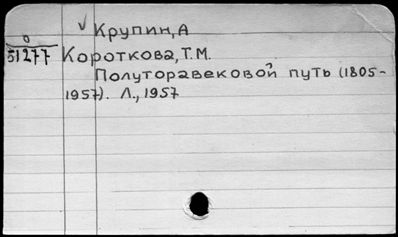 √ Крупин, А
0
51277 Короткова, Т.М.
Полуторавековой путь (1805-
1957). Л., 1957